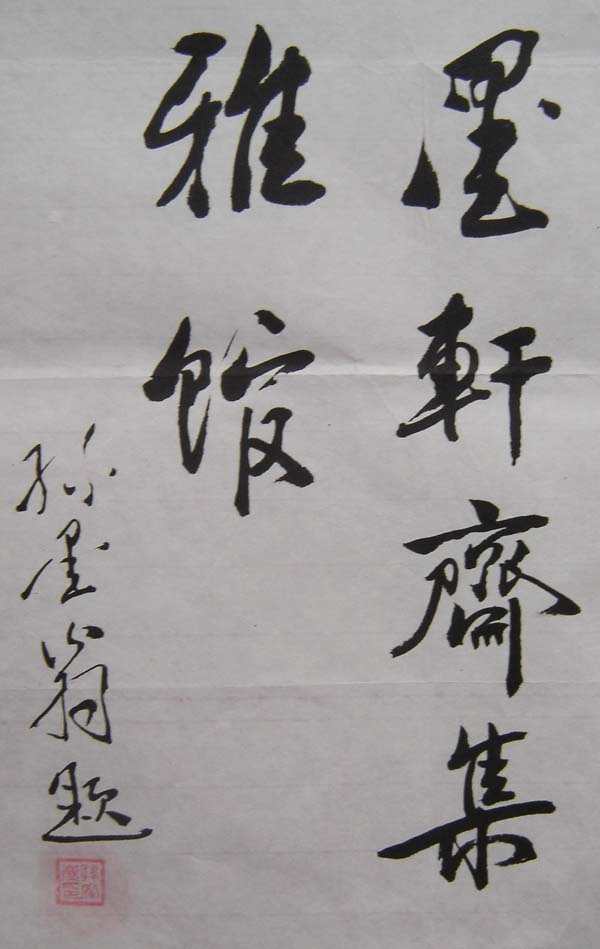 墨軒齋集
雅館
孫墨翁題